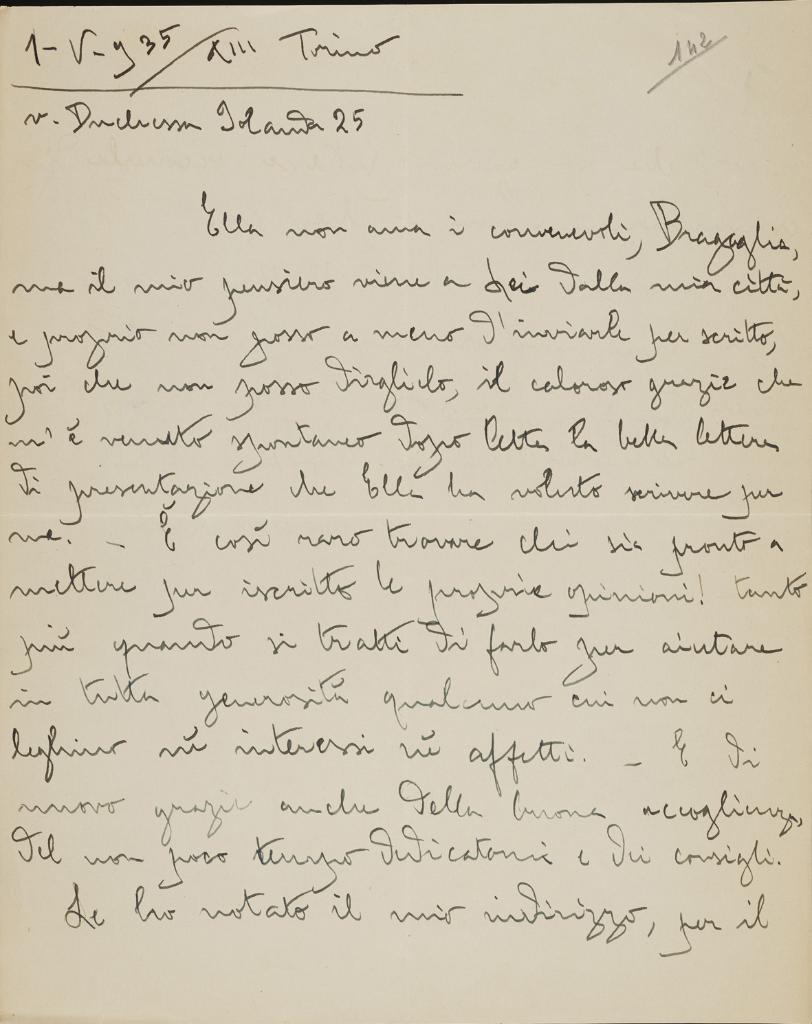 1-V-935/XIII Torino
142
v. Duchessa Jolanda 25
Ella non ama i convenevoli, Bragaglia,
ma il mio pensiero viene a Lei dalla mia città,
e proprio non posso a meno d'inviarle per scritto,
poi che non posso dirglielo, il caloroso grazie che
m'è venuto spontaneo dopo letta la bella lettera
di presentazione che Ella ha voluto scrivere per
me. – È così raro trovare chi sia pronto a
mettere per iscritto le proprie opinioni! tanto
più quando si tratti di farlo per aiutare
in tutta generosità qualcuno cui non ci
leghino nè interessi nè affetti. – E di
nuovo grazie anche della buona accoglienza,
del non poco tempo dedicatomi e dei consigli.
Le ho notato il mio indirizzo, per il